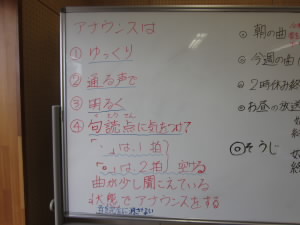 アナウンスは
①ゆっくり
②通る声で
③明るく
くとうてん
④句読点に気をつけて
「、」は、1拍
「。」は、2拍 空ける
曲が少し聞こえている
状態でアナウンスをする
。朝の曲
。今週の曲
。2時休み終
。お昼の放送
◎そうじ